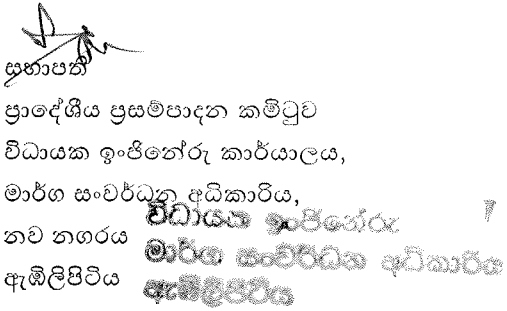 සභාපති
ප්‍රාදේශීය ප්‍රසම්පාදන කමිටුව
විධායක ඉංජිනේරු කාර්යාලය,
මාර්ග සංවර්ධන අධිකාරිය,
නව නගරය
ඇඹිලිපිටිය
විධායක ඉංජිනේරු
මාර්ග සංවර්ධන අධිකාරිය
ඇඹිලිපිටිය